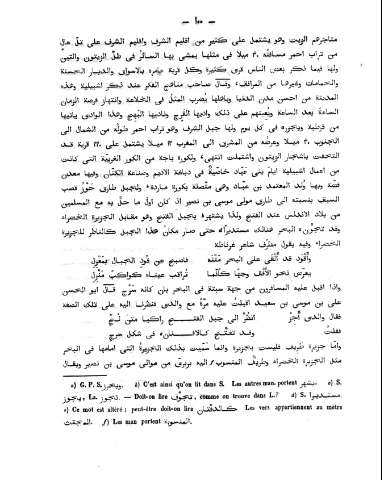 — ١٠٠ —
متاجرهم الزيت وهو يشتمل على كثير من اقليم الشرف واقليم الشرف على تل عال
من تراب احمر مسافته ٤٠ ميلا فى مثلها يمشى بها السائر فى ظل الزيتون والتين
ولها فيما ذكر بعض الناس قرى كثيرة وكل قرية عامرة بالاسواق والديار الحسنة
والحمامات وغيرها من المرافق وقال صاحب مناهج الفكر عند ذكر اشبيلية وهذه
المدينة من احسن مدن الدنيا وباهلها يُضرب المثل فى الخلاعة وانتهاز فرصة الزمان
الساعة بعد الساعة ويُعينهم على ذلك واديها الفرج وناديها البهج وهذا الوادى ياتيها
من قرطبة ويجزره فى كل يوم ولها جبل الشرف وهو تراب احمر طوله من الشمال الى
الجنوب ٤٠ ميلا وعرضه من المشرق الى المغرب ١٢ ميلا يشتمل على ٢٢٠ قرية قد
التحفت باشجار الزيتون واشتملت انتهى ولكورة باجة من الكور الغربية التى كانت
من اعمال اشبيلية ايام بنى عبّاد خاصّيّة فى دباغة الاديم وصناعة الكتّان وفيها معدن
فضة وبها وُلد المعتمد بن عبّاد وهى متّصلة بكورة ماردة ولجبل طارق حَوْز قصب
السبق بنسبته الى طارق مولى موسى بن نصير اذ كان اول ما حلّ به مع المسلمين
من بلاد الاندلس عند الفتح ولذا يشتهر بجبل الفتح وهو مقابل الجزيرة الخضراء
وقد تجوّن البحر هنالك مستديرا حتى صار مكان هذا الجبل كالناظر للجزيرة
الخضراء وفيه يقول مطرّف شاعر غرناطة
وأقْوَد قد ألقى على البحر مَتْنَه فاصبح عن قُود الجبال بمعزل
يعرّض نحو الأفق وجها كانّما تراقب عيناه كواكب منزل
واذا اقبل عليه المسافرون من جهة سبتة فى البحر بان كانه سرج قال ابو الحسن
على بن موسى بن سعيد اقبلت عليه مرة مع والدى فنظرنا اليه على تلك الصفة
فقال والدى أجِزْ انظر الى جبل الفتح راكبا متن لجّ
فقلت وقد تفتّح كالافتنان فى شكل سرج
وامّا جزيرة طريف فليست بجزيرة وانما سميت بذلك الجزيرة التى امامها فى البحر
مثل الجزيرة الخضراء وطريف المنسوب اليه بربرى من موالى موسى بن نصير ويقال
a) G. P. S. ويجزر. b) C'est ainsi qu'on lit dans S. Les autres man. portent نشهر. c) S.
يجوز, La. تجوز. — Doit-on lire تجوّف, comme on trouve dans L.? d) S. مستديرا.
e) Ce mot est altéré; peut-être doit-on lire كالدفّتان. Les vers appartiennent au mètre
المجتث. f) Les man. portent المنسوبة.